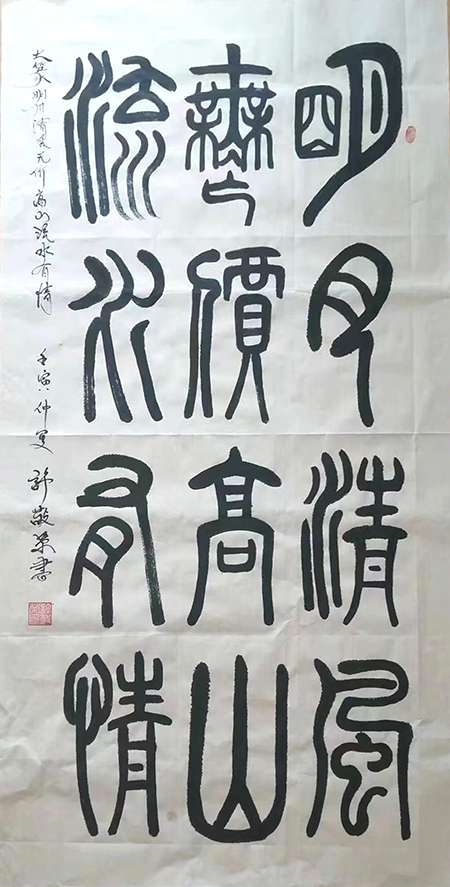 明月清風
無價高山
流水有情
大篆明月清風无价高山流水有情 壬寅仲夏 書